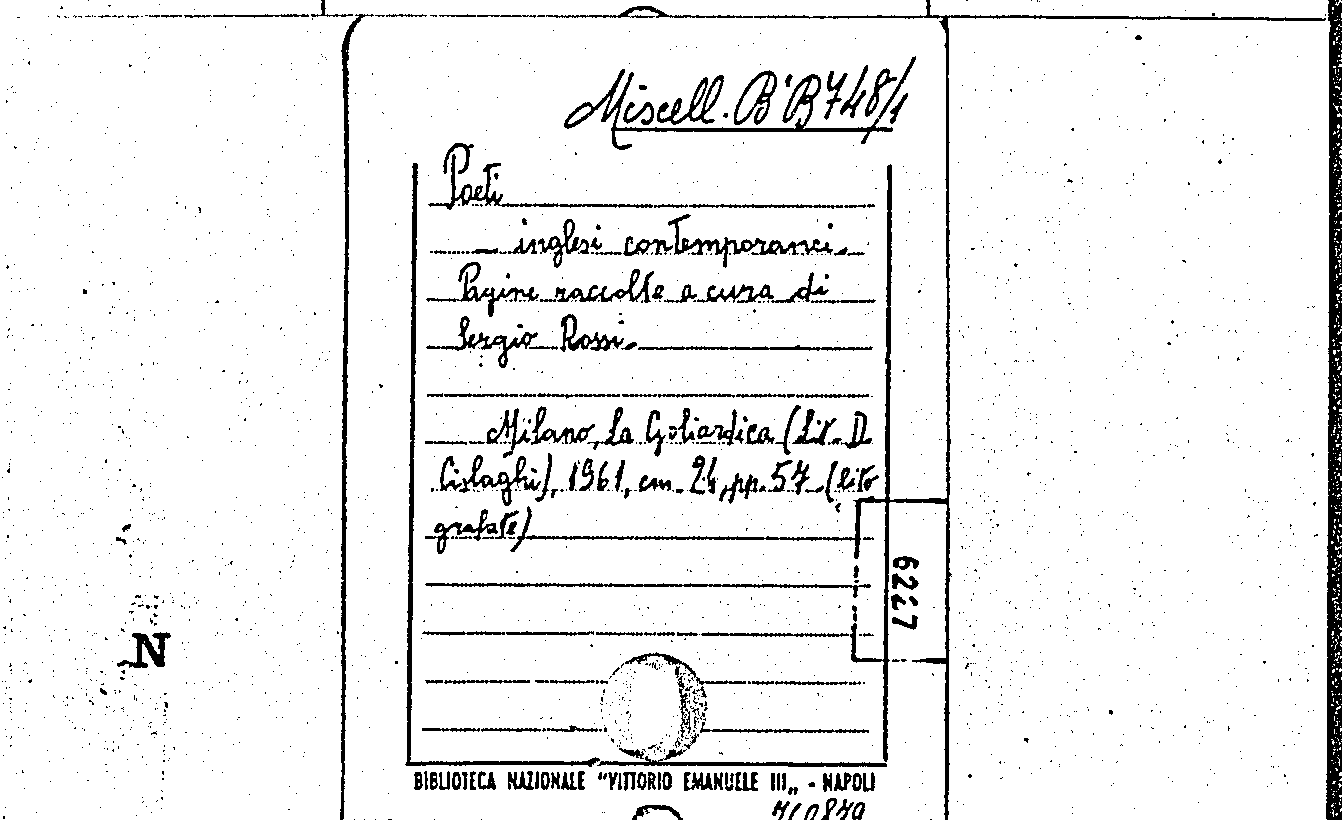 Miscell. B'B748/1
Poeti
inglesi contemporanei.
Pagine raccolte a cura di
Sergio Rossi.
Milano, La Goliardica (Lit. D.
Cislaghi), 1961, cm. 24, pp. 57 (lito
grafate)
6227
N
BIBLIOTECA NAZIONALE "VITTORIO EMANUELE III„ - NAPOLI